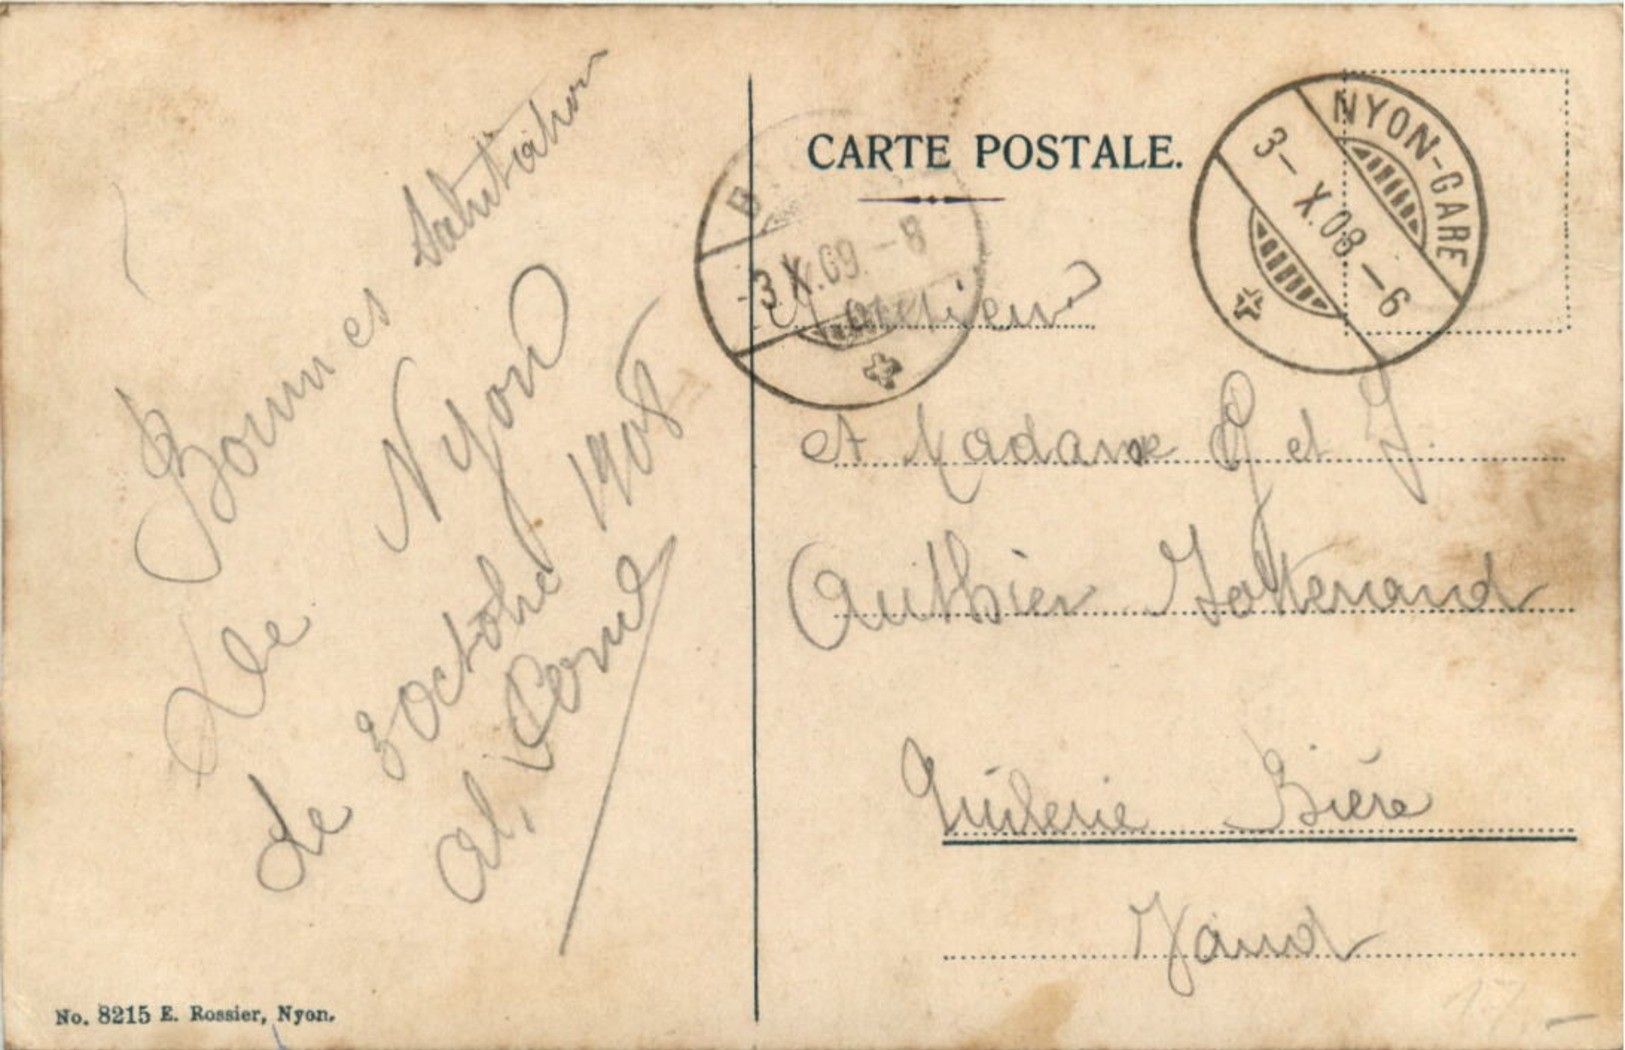 Bonnes Salutation
de Nyon
Le 3 octobre 1908
al,
No. 8215 E. Rossier, Nyon.
CARTE POSTALE.
NYON-GARE
3-X.08-6
B
-3.X.09.-8
et Madame G et J.
Authier
Tuilerie Bière
Vaud